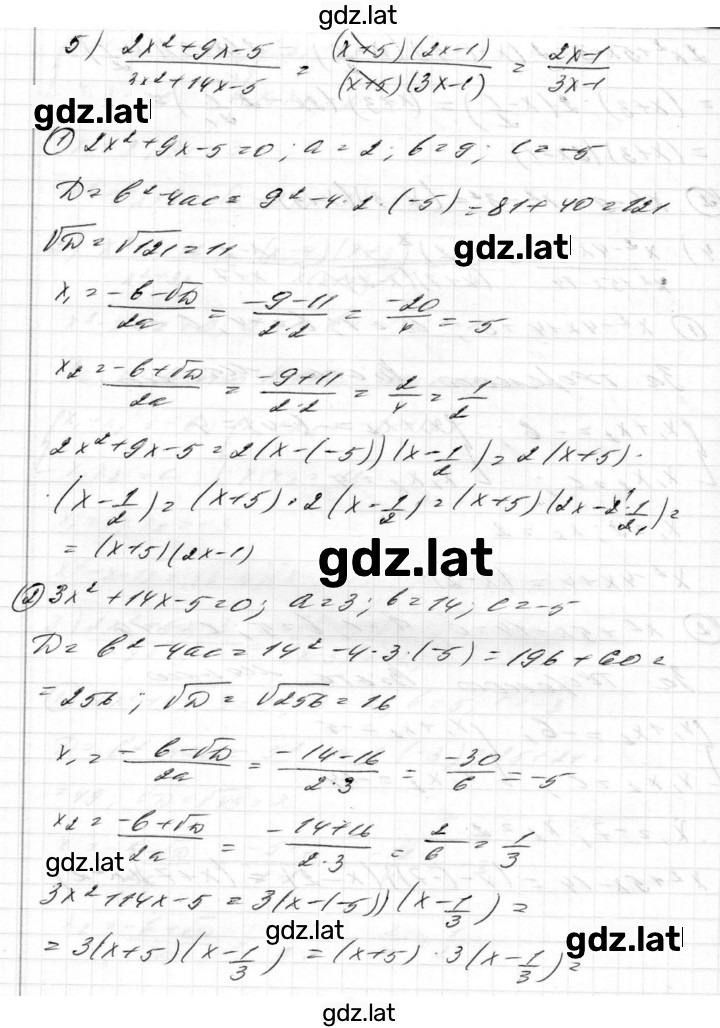 gdz.lat
5) (2x²+9x-5)/(3x²+14x-5) = ((x+5)(2x-1))/((x+5)(3x-1)) = (2x-1)/(3x-1)
gdz.lat
① 2x²+9x-5=0; a=2; b=9; c=-5
D=b²-4ac=9²-4·2·(-5)=81+40=121
√D=√121=11
gdz.lat
x₁=(-b-√D)/2a=(-9-11)/(2·2)=-20/4=-5
x₂=(-b+√D)/2a=(-9+11)/(2·2)=2/4=1/2
2x²+9x-5=2(x-(-5))(x-1/2)=2(x+5)·
·(x-1/2)=(x+5)·2(x-1/2)=(x+5)(2x-2·1/2)=
=(x+5)(2x-1)
gdz.lat
② 3x²+14x-5=0; a=3; b=14; c=-5
D=b²-4ac=14²-4·3·(-5)=196+60=
=256; √D=√256=16
x₁=(-b-√D)/2a=(-14-16)/(2·3)=-30/6=-5
x₂=(-b+√D)/2a=(-14+16)/(2·3)=2/6=1/3
gdz.lat
3x²+14x-5=3(x-(-5))(x-1/3)=
gdz.lat
=3(x+5)(x-1/3)=(x+5)·3(x-1/3)=
gdz.lat
gdz.lat